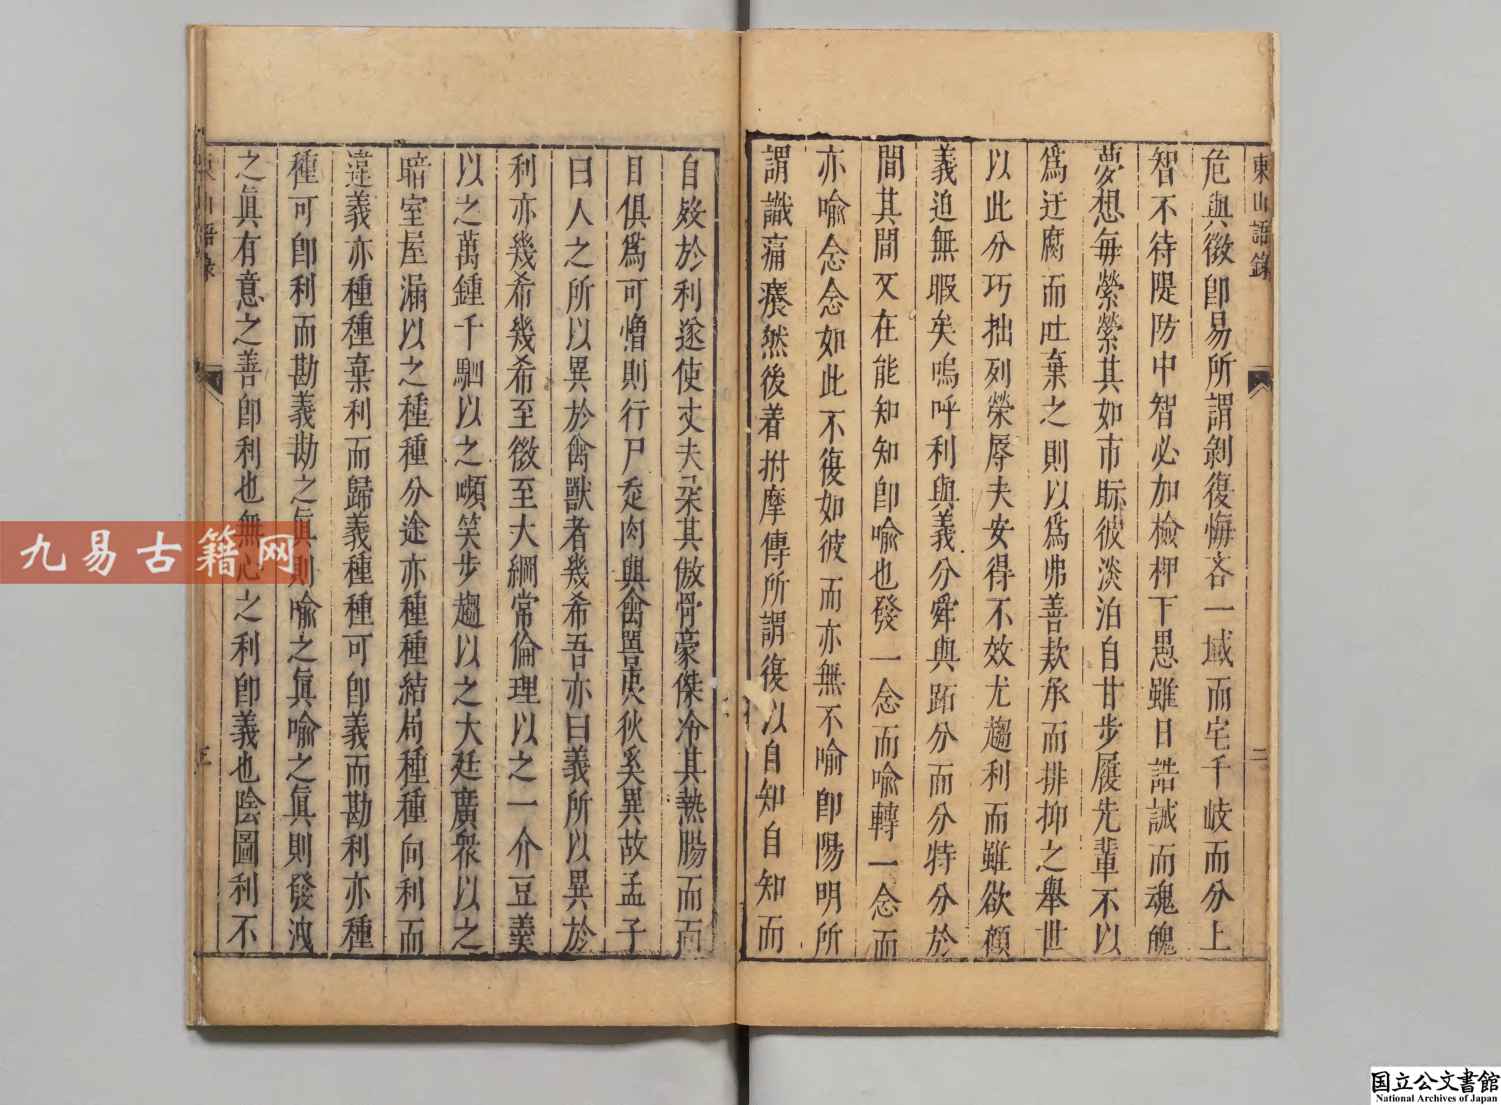 東山語錄
二
危與徵卽易所謂剝復悔吝一域而宅千岐而分上
智不待隄防中智必加檢柙下愚雖日誥誡而魂魄
夢想每縈縈其如市眎彼淡泊自甘步履先輩不以
爲迂腐而吐棄之則以爲弗善欺承而排抑之舉世
以此分巧拙列榮辱夫安得不效尤趨利而雖欲顧
義迫無暇矣嗚呼利與義分舜與跖分而分特分於
間其間又在能知知卽喻也發一念而喻轉一念而
亦喻念念如此不復如彼而亦無不喻卽陽明所
謂識痛癢然後着拊摩傳所謂復以自知自知而
自殽於利遂使丈夫朵其傲骨豪傑冷其熱腸而面
目俱爲可憎則行尸走肉與禽單夷狄奚異故孟子
曰人之所以異於禽獸者幾希吾亦曰義所以異於
利亦幾希幾希至微至大綱常倫理以之一介豆羹
以之萬鍾千駟以之嚬笑步趨以之大廷廣衆以之
暗室屋漏以之種種分途亦種種結局種種向利而
違義亦種種棄利而歸義種種可卽義而勘利亦種
種可卽利而勘義勘之眞則喻之眞喻之眞則發洩
之眞有意之善卽利也無心之利卽義也陰圖利不
東山語錄
三
九易古籍网
国立公文書館
National Archives of Japan